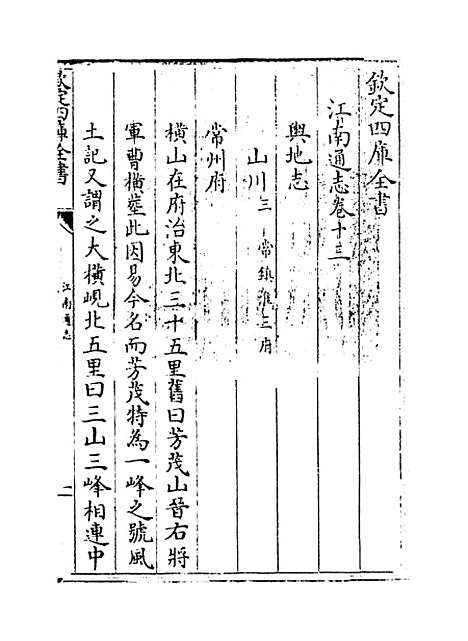 欽定四庫全書
江南通志卷十三
輿地志
山川三 常鎮淮三府
常州府
橫山在府治東北三十五里舊曰芳茂山晉右將
軍曹橫塟此因易今名而芳茂特為一峰之號風
土記又謂之大橫峴北五里曰三山三峰相連中
欽定四庫全書
江南通志